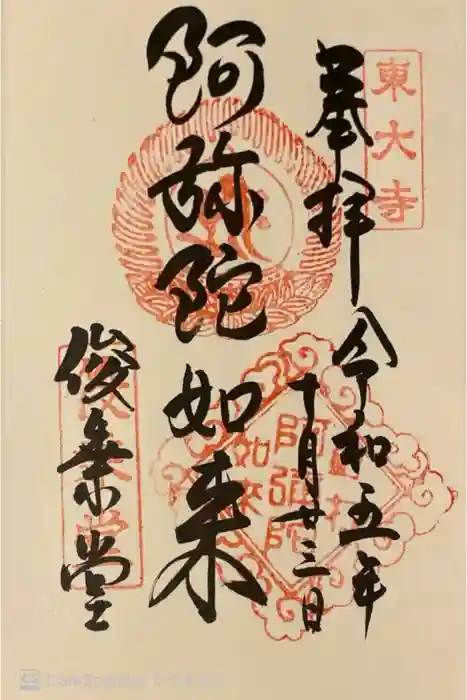 東大寺
奉拝
令和五年
十月廿三日
阿弥陀如来
阿彌陀
如來
俊乗堂
CS CamScanner